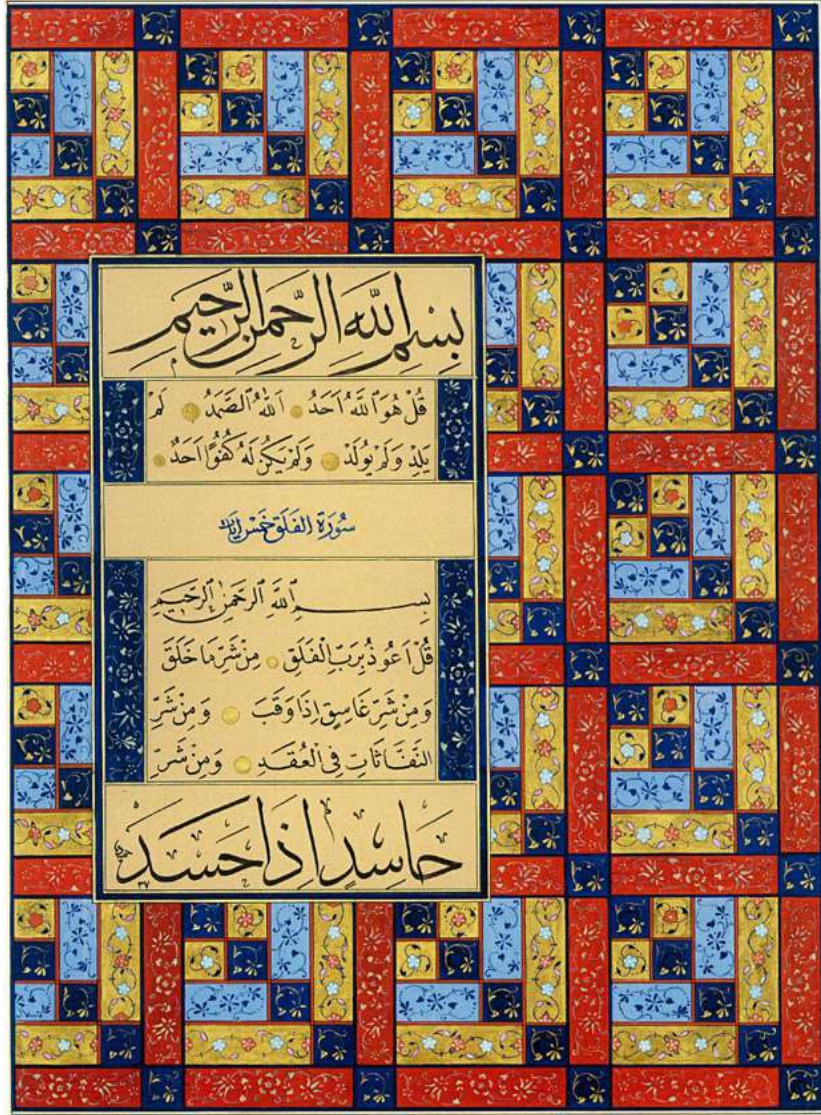 بِسْمِ اللّٰهِ الرَّحْمٰنِ الرَّحِيمِ
قُلْ هُوَ ٱللَّهُ اَحَدٌ اَللّٰهُ ٱلصَّمَدُ لَمْ
يَلِدْ وَلَمْ يُولَدْ وَلَمْ يَكُنْ لَهُ كُفُوًا اَحَدٌ
سُورَة الفَلَق خَمْس ايات
بِسْــــــمِ ٱللَّهِ ٱلرَّحْمٰنِ ٱلرَّحِيمِ
قُلْ اَعُوذُ بِرَبِّ الْفَلَقِ مِنْ شَرِّ مَا خَلَقَ
وَمِنْ شَرِّ غَاسِقٍ اِذَا وَقَبَ وَمِنْ شَرِّ
النَّفَّاثَاتِ فِى الْعُقَدِ وَمِنْ شَرِّ
حَاسِدٍ اِذَا حَسَدَ
٣٧